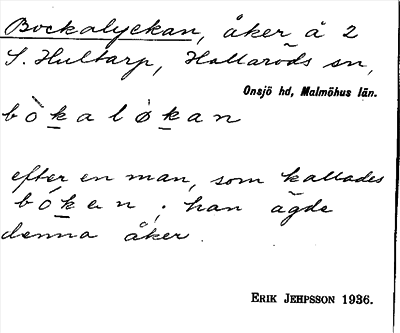 Bockalyckan, åker å 2
S. Hultarp, Hallaröds sn,
Onsjö hd, Malmöhus län.
bò̱kalø̀ḵan
efter en man, som kallades
bóḵen; han ägde
denna åker.
ERIK JEHPSSON 1936.